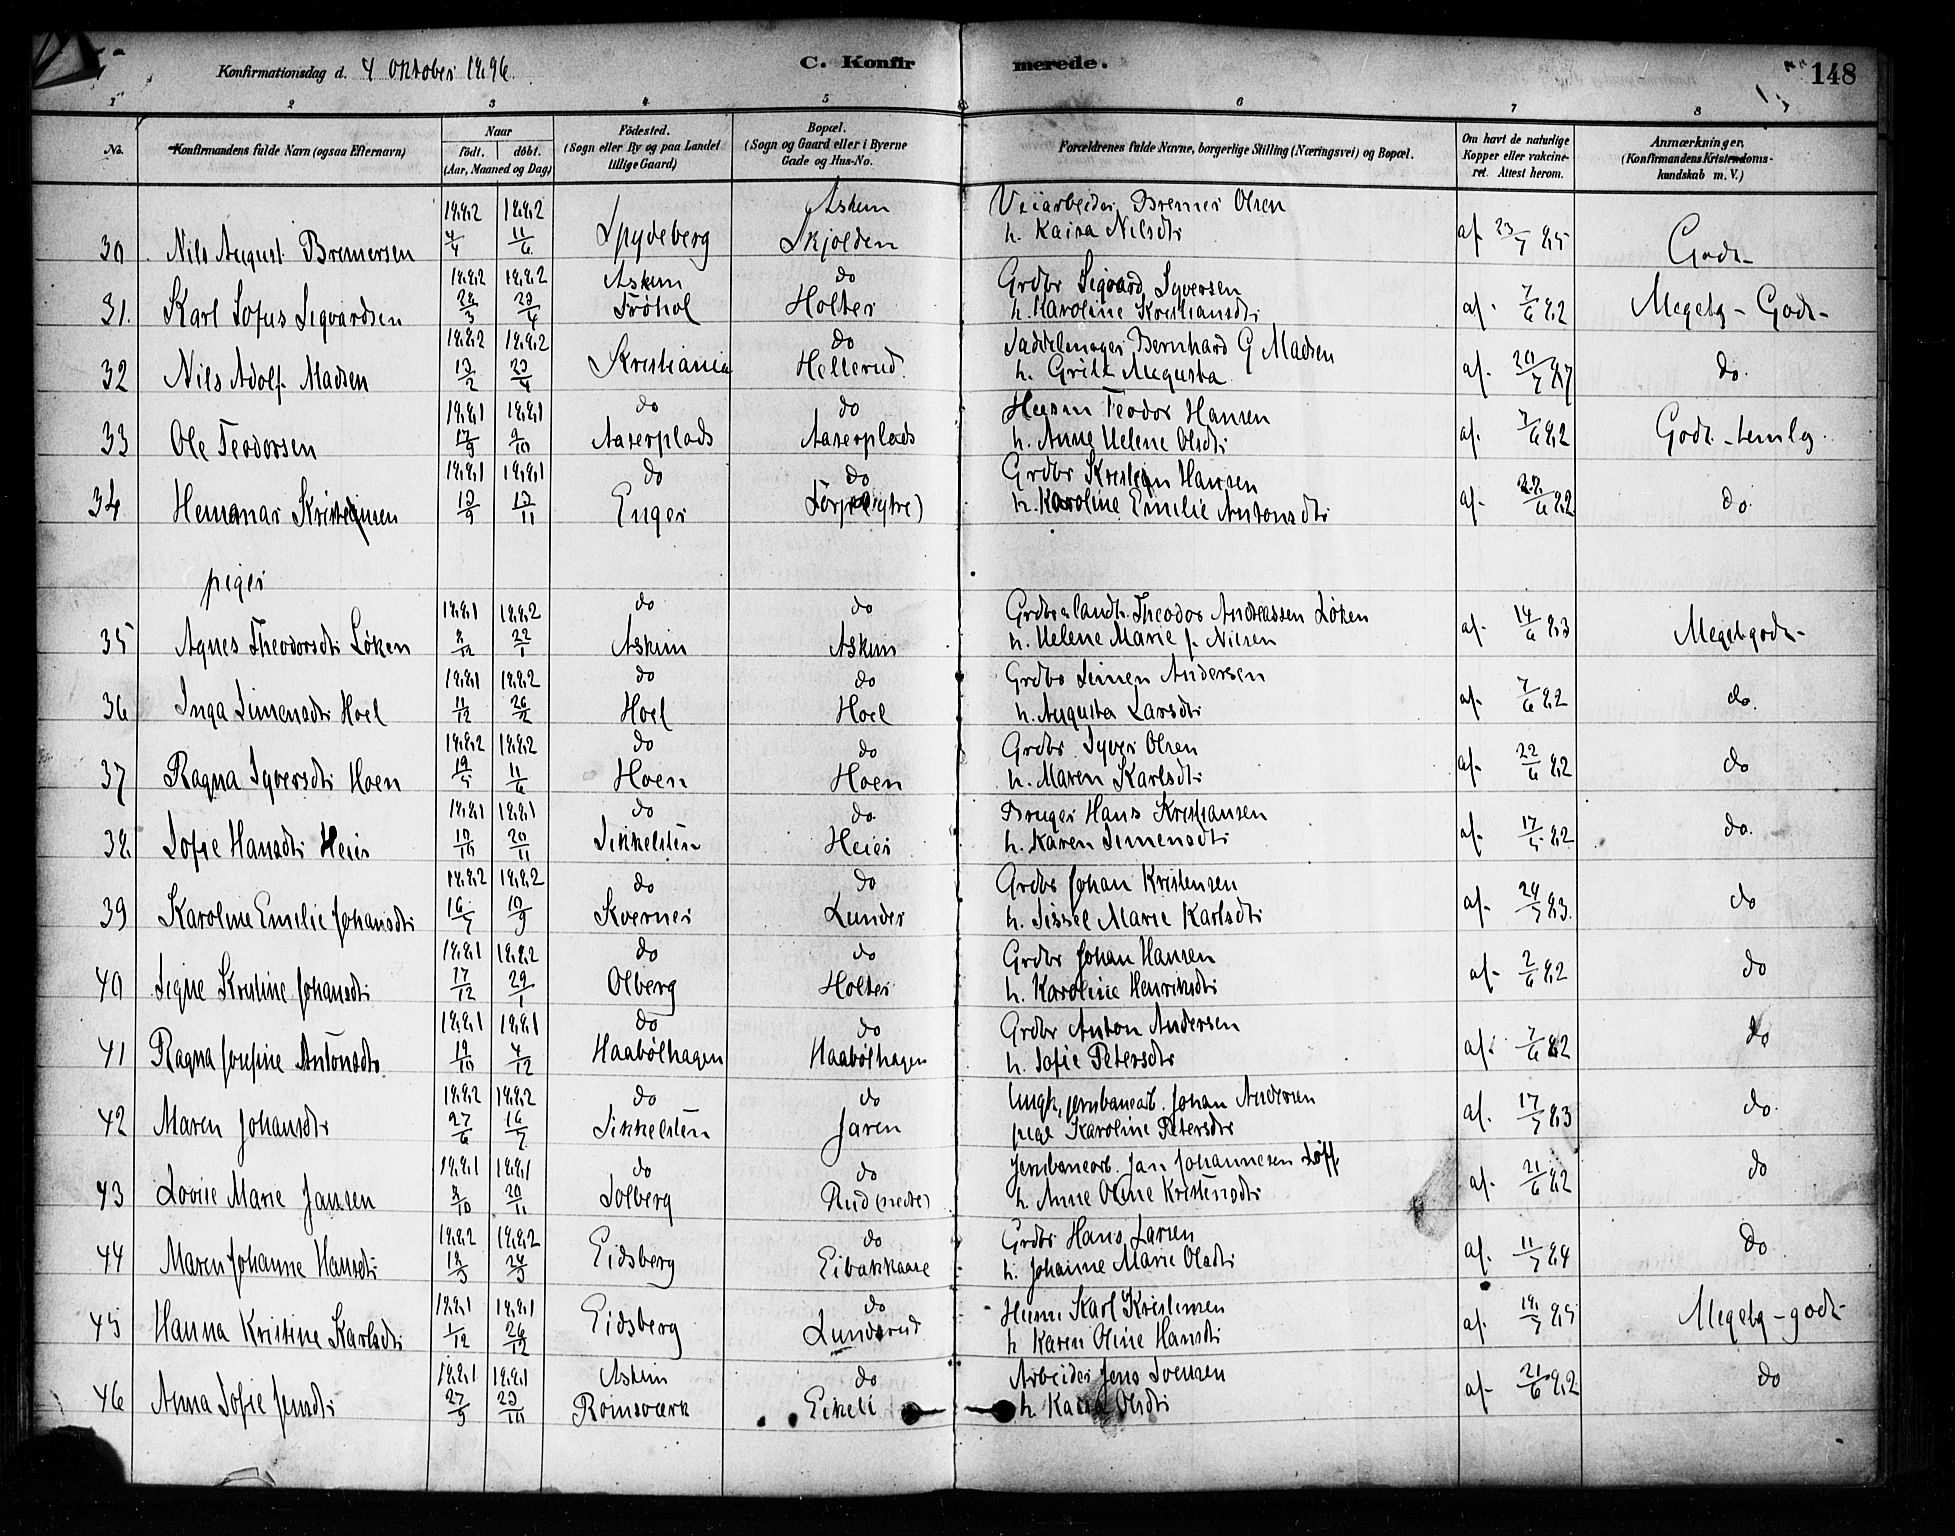 Konfirmationsdag d. 4 Oktober 1896.
C. Konfirmerede.
148
1 2 3 4 5 6 7 8
No.
Konfirmandens fulde Navn (ogsaa Efternavn)
Naar
födt. döbt.
(Aar, Maaned og Dag)
Födested.
(Sogn eller By og paa Landet
tillige Gaard)
Bopæl.
(Sogn og Gaard eller i Byerne
Gade og Hus-No.
Forældrenes fulde Navne, borgerlige Stilling (Næringsvei) og Bopæl.
Om havt de naturlige
Kopper eller vakcine-
ret. Attest herom.
Anmærkninger.
(Konfirmandens Kristendoms-
kundskab m. V.)
1882 1882 Askim Veiarbeider Bremer Olsen
30 Nils August Bremersen 4/4 11/6 Spydeberg Skjolden h. Kaisa Nilsdtr af 23/7 85 Godt
1882 1882 Askim do Grdbr Sigvard Syversen
31. Karl Sofus Sigvardsen 23/4 Tröhol Holter h. Karoline Kristiansdtr af 7/6 82 Megetg - Godt
1882 1882 do Saddelmager Bernhard G Madsen
32 Nils Adolf Madsen 13/2 23/4 Kristiania Hellerud h. Augusta af 87 do.
1881 1881 do do Husm Teodor Hansen
33 Ole Teodorsen 17/9 9/10 Aaserplads Aaserplads h. Anne Helene Olsdtr af 7/6 82 Godt - temlg.
1881 1881 do do Grdbr Kristian Hansen
34 Kristiansen 13/9 13/11 Enger (ytre) h. Karoline Emilie Antonsdtr af 22/6 82 do
piger
1881 1882 do do Theodor Andreassen Löken
35 Agnes Theodorsdtr Löken 22/1 Askim Askim h. Helene Marie f. Nilsen af 14/6 83 Megetgodt
1881 1882 do do Grdbr Simen Andersen
36 Inga Simensdtr Hoel 11/12 26/2 Hoel Hoel h. Augusta Larsdtr af 7/6 82 do.
1882 1882 do do Grdbr Syver Olsen
37 Ragna Syversdtr Hoen 19/5 11/6 Hoen Hoen h. Maren Karlsdtr af 22/6 82 do
1881 1881 do do Bruger Hans Kristiansen
38 Sofie Hansdtr Heier 20/11 Sikkelsten Heier h. Karen Simensdtr af 17/5 82 do.
1882 1882 do do Grdbr Johan Kristensen
39 Karoline Emilie Johansdtr 16/7 10/9 Kverner Lunder h. Sissel Marie Karlsdtr af 83 do
1881 1882 do do Grdbr Johan Hansen
40 Signe Kristine Johansdtr 17/12 29/1 Olberg Holter h. Karoline Henriksdtr af 2/6 82 do
1881 1881 do do Grdbr Anton Andersen
41 Ragna Josefine Antonsdtr 19/10 4/12 Haabölhagen Haabölhagen h. Sofie Petersdtr af 7/6 82 do
1882 1882 do do Ungk, jernbanearb. Johan Andersen
42 Maren Johansdtr 27/6 16/7 Sikkelsten Jaren pige Karoline Petersdtr af 17/7 83 do
1881 1881 do do Jernbanearb. Jan Johannesen Löff
43 Lovise Marie Jansen 8/10 20/11 Solberg Rud (nedre) h. Anne Oline Kristensdtr af 21/6 82 do
1882 1882 do Grdbr Hans Larsen
44 Maren Johanne Hansdtr Eidsberg h. Johanne Marie Olsdtr af 11/7 84 do
1881 1881 do Husm Karl Kristensen
45 Hanna Kristine Karlsdtr 1/12 26/12 Eidsberg Lundsrud h Karen Oline Hansdtr af 85 Megetg - godt
1881 1881 Askim do Arbeider Jens Svensen
46 Anna Sofie Jensdtr 27/9 23/10 Romsværk Eikeli h Kaisa Olsdtr af 21/6 82 do